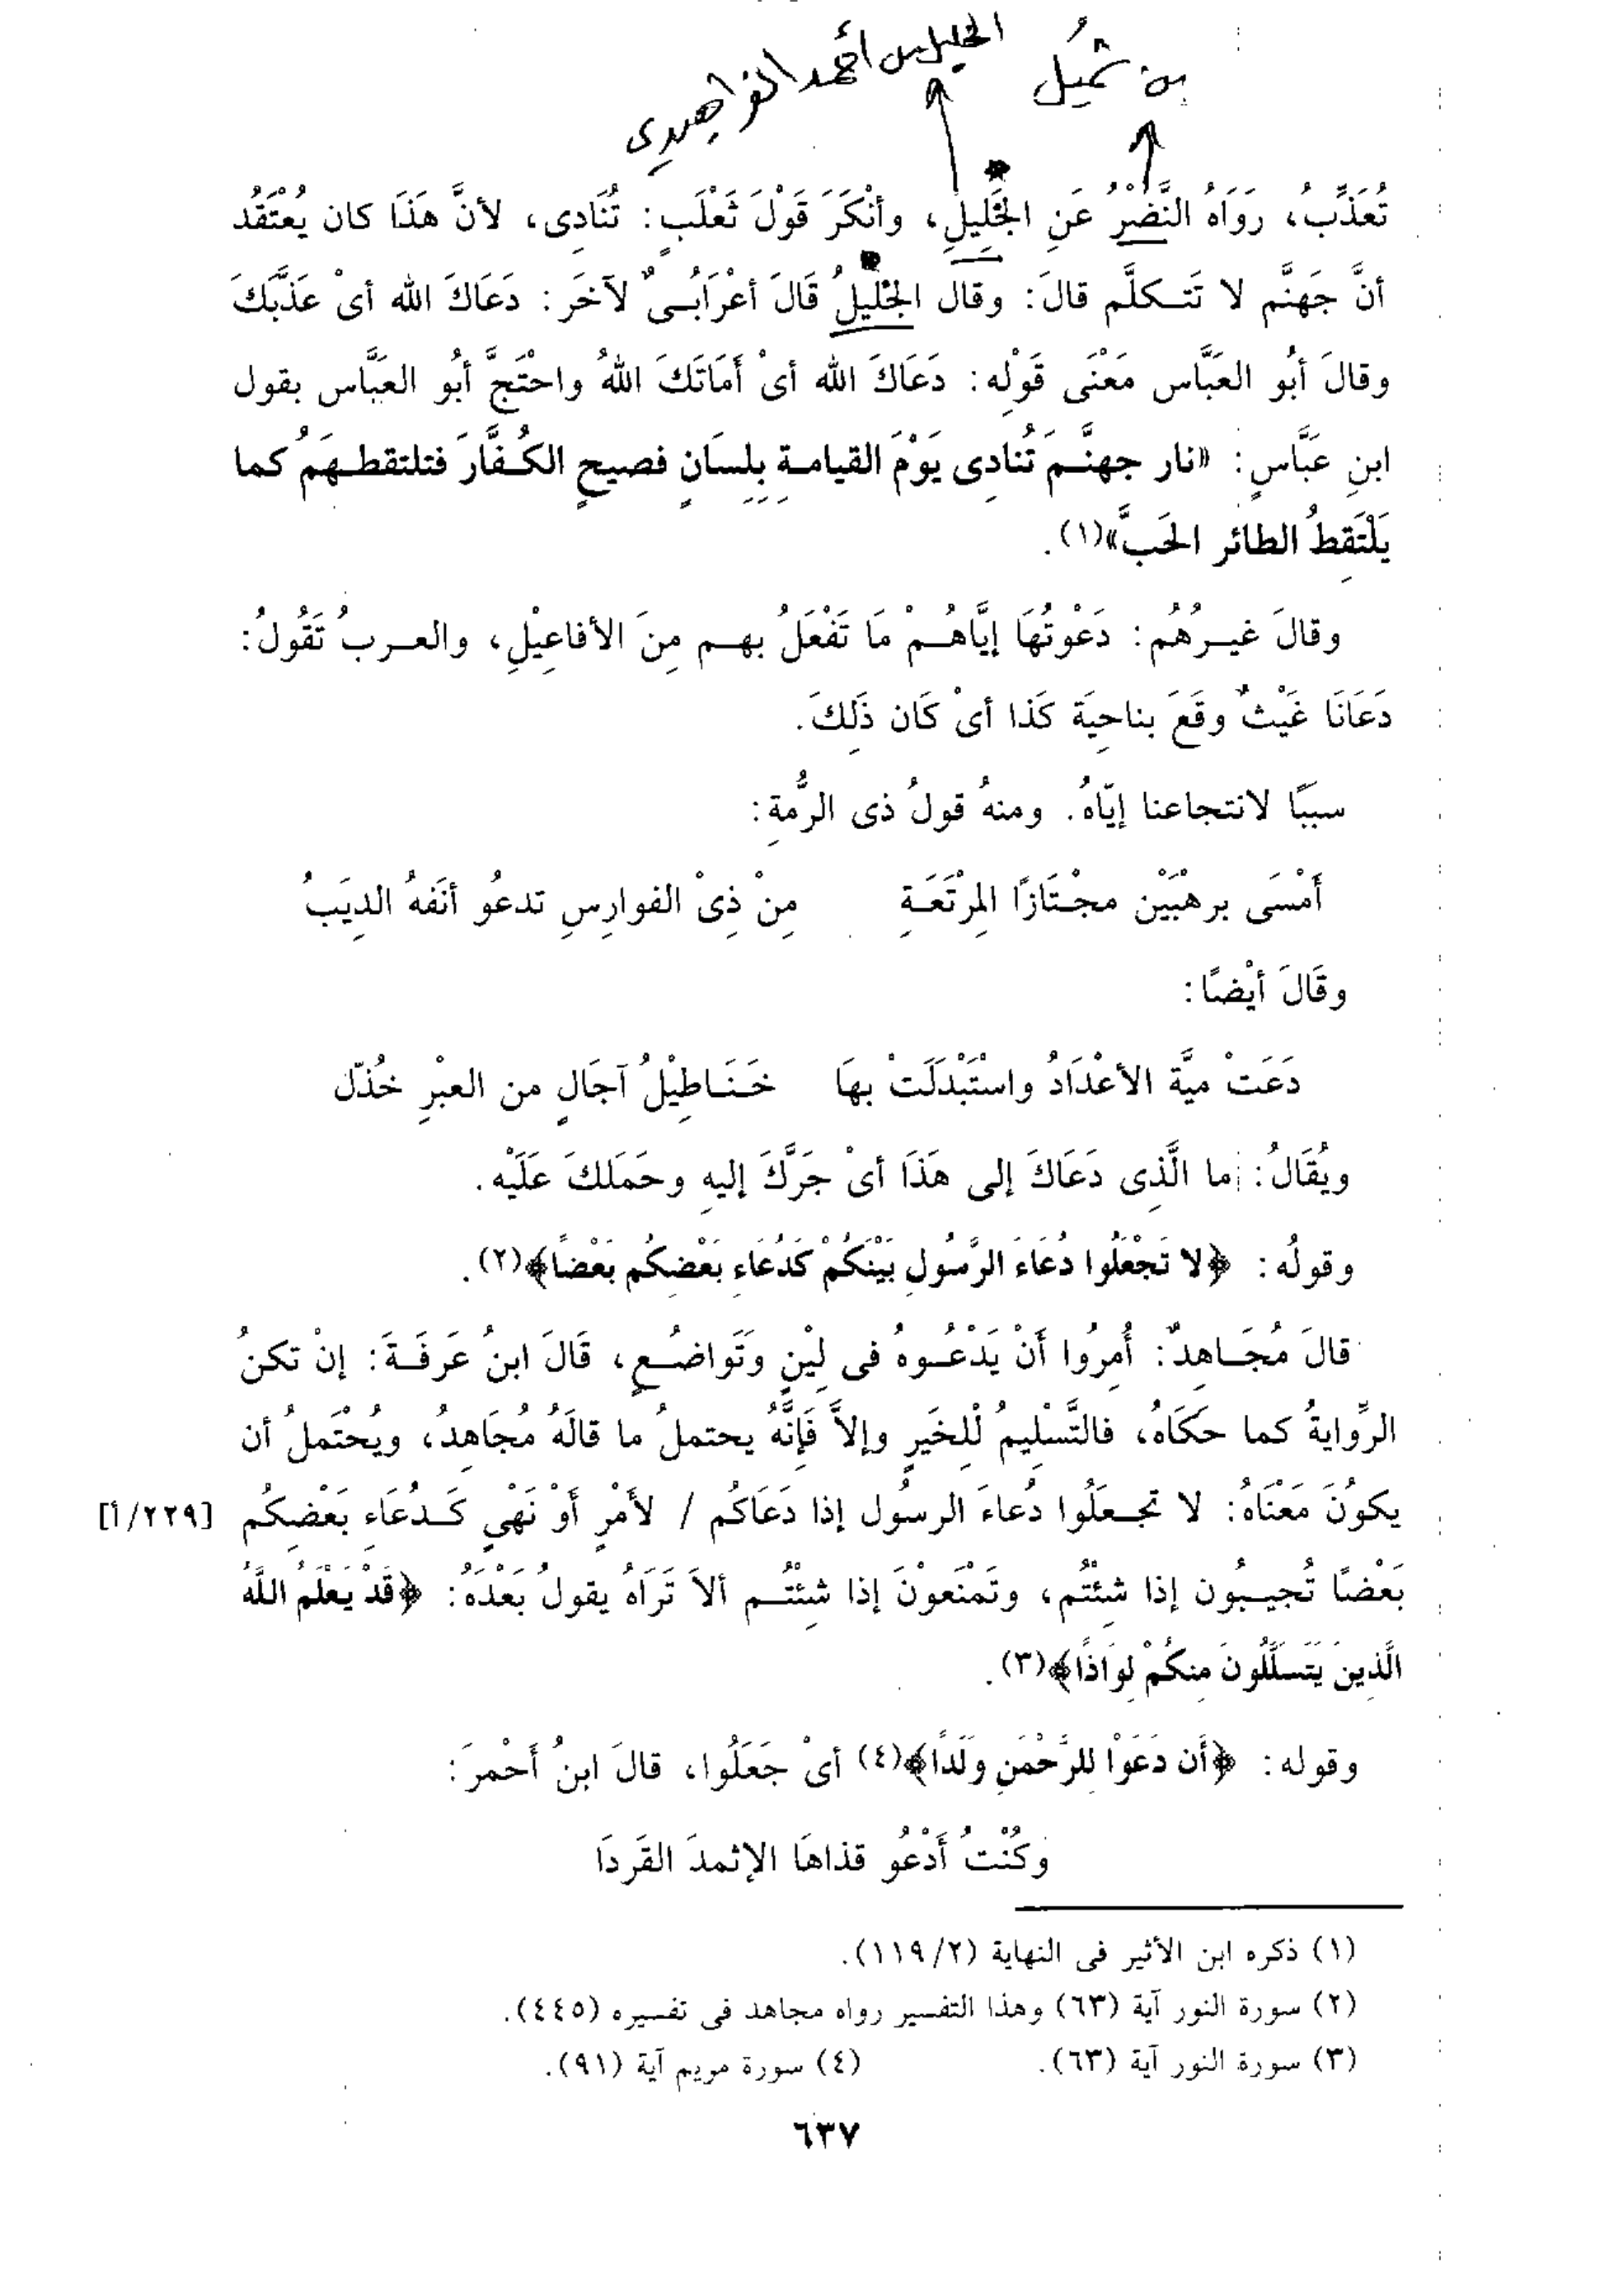 بن شميل
الخليل بن أحمد الفراهيدى
تُعَذِّبُ، رَوَاهُ النَّضْرُ عَنِ الخَلِيلِ، وأنْكَرَ قَوْلَ ثَعْلَبٍ: تُنَادِى، لأنَّ هَذَا كان يُعْتَقَدُ
أنَّ جَهنَّم لا تَتكلَّم قالَ: وقال الخَلِيلُ قَالَ أعْرَابُىٌ لآخَرَ: دَعَاكَ الله أىْ عَذَّبَكَ
وقالَ أبُو العَبَّاس مَعْنَى قَوْلِه: دَعَاكَ الله أىْ أَمَاتَكَ اللهُ واحْتَجَّ أبُو العَبَّاس بقول
ابنِ عَبَّاسٍ: «نار جهنَّمَ تُنادِى يَوْمَ القيامةِ بِلِسَانٍ فصيحٍ الكُفَّارَ فتلتقطهَمُ كما
يَلْتَقِطُ الطائر الحَبَّ»(١).
وقالَ غيرُهُم: دَعْوتُهَا إيَّاهُمْ مَا تَفْعَلُ بهم مِنَ الأفاعِيْلِ، والعربُ تَقُولُ:
دَعَانَا غَيْثٌ وقَعَ بناحِيَة كَذا أىْ كَان ذَلِكَ.
سببًا لانتجاعنا إيّاهُ. ومنهُ قولُ ذى الرُّمةِ:
أَمْسَى برهْبَيْن مجْتَازًا لِمرْتَعَةِ مِنْ ذِىْ الفوارِسِ تدعُو أنَفهُ الدِيَبُ
وقَالَ أيْضًا:
دَعَتْ ميَّة الأعْدَادُ واسْتَبْدَلَتْ بهَا خَنَاطِيْلُ آجَالٍ من العبْرِ خُذّل
ويُقَالُ: ما الَّذِى دَعَاكَ إلى هَذَا أىْ جَرَّكَ إليهِ وحَمَلكَ عَلَيْه.
وقولُه: ﴿لا تَجْعَلُوا دُعَاءَ الرَّسُولِ بَيْنَكُمْ كَدُعَاءِ بَعْضِكُم بَعْضًا﴾(٢).
قالَ مُجَاهِدٌ: أُمِرُوا أَنْ يَدْعُوهُ فى لِيْنٍ وَتَواضُعٍ، قَالَ ابنُ عَرفَةَ: إنْ تكنُ
الرِّوايةُ كما حَكَاهُ، فالتَّسْلِيمُ لْلِخَيرٍ وإلاَّ فَإنَّهُ يحتملُ ما قالَهُ مُجَاهِدُ، ويُحْتَملُ أن
يكوُنَ مَعْنَاهُ: لا تجعَلُوا دُعاءَ الرسُول إذا دَعَاكُم / لأَمْرٍ أَوْ نَهْىٍ كَدُعَاءِ بَعْضِكُم [٢٢٩/أ]
بَعْضًا تُجيبُون إذا شِئتُم، وتَمْنَعوْنَ إذا شِئْتُم ألاَ تَرَاهُ يقولُ بَعْدَهُ: ﴿قَدْ يَعْلَمُ اللَّهُ
الَّذِينَ يَتَسَلَّلُونَ مِنكُمْ لِوَاذًا﴾(٣).
وقوله: ﴿أَن دَعَوْا لِلرَّحْمَنِ وَلَدًا﴾(٤) أىْ جَعَلُوا، قالَ ابنُ أَحْمرَ:
وكُنْتُ أَدْعُو قذاهَا الإثمدَ القَردَا
(١) ذكره ابن الأثير فى النهاية (١١٩/٢).
(٢) سورة النور آية (٦٣) وهذا التفسير رواه مجاهد فى تفسيره (٤٤٥).
(٣) سورة النور آية (٦٣). (٤) سورة مريم آية (٩١).
٦٣٧